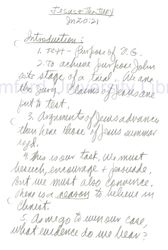 Jesus & Testimony
Jn 20:21
Introduction:
1. Purpose of
2. To achieve purpose John
into stage of a trial. We are
the jury. Claims of Jesus are
put to test.
3. Arguments of Jesus advances
then here these of Jesus summer
4. This is our task. We must
beseech, encourage & persuade,
but we must also convince.
There is a reason to believe in
Christ.
5. As we go to win our case,
what evidence do we hear?